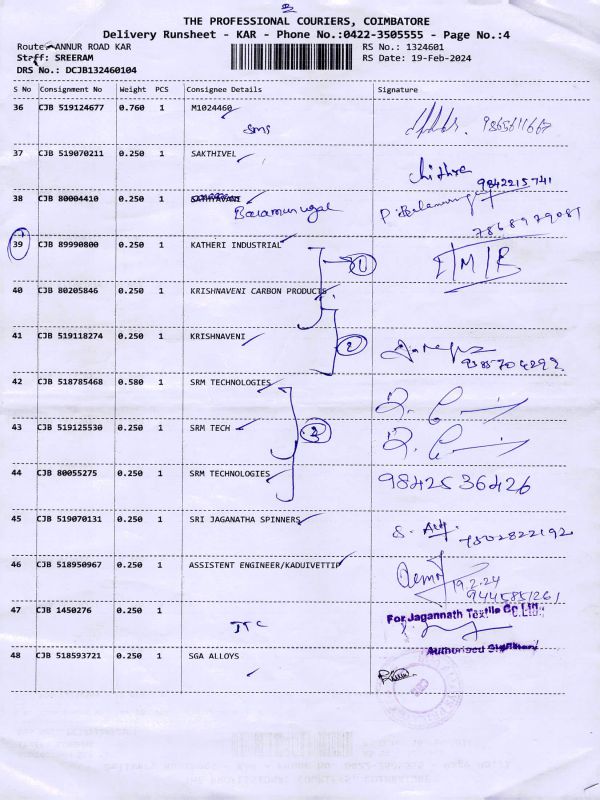 THE PROFESSIONAL COURIERS, COIMBATORE
Delivery Runsheet - KAR - Phone No.:0422-3505555 - Page No.:4
Route: ANNUR ROAD KAR
RS No.: 1324601
Staff: SREERAM
RS Date: 19-Feb-2024
DRS No.: DCJB132460104
S No Consignment No Weight PCS Consignee Details Signature
36 CJB 519124677 0.760 1 M1024460
sms
37 CJB 519070211 0.250 1 SAKTHIVEL Chithra
9842215741
38 CJB 80004410 0.250 1
Balamurugan
7868979081
39 CJB 89990800 0.250 1 KATHERI INDUSTRIAL
1
40 CJB 80205846 0.250 1 KRISHNAVENI CARBON PRODUCTS
41 CJB 519118274 0.250 1 KRISHNAVENI
2
9385704292
42 CJB 518785468 0.580 1 SRM TECHNOLOGIES
43 CJB 519125530 0.250 1 SRM TECH
3
44 CJB 80055275 0.250 1 SRM TECHNOLOGIES 9842536426
45 CJB 519070131 0.250 1 SRI JAGANATHA SPINNERS
7502822192
46 CJB 518950967 0.250 1 ASSISTENT ENGINEER/KADUIVETTIP
19.2.24
9445851261
47 CJB 1450276 0.250 1
JTC
For Jagannath Textile Co Ltd.,
Authorised Signatory
48 CJB 518593721 0.250 1 SGA ALLOYS